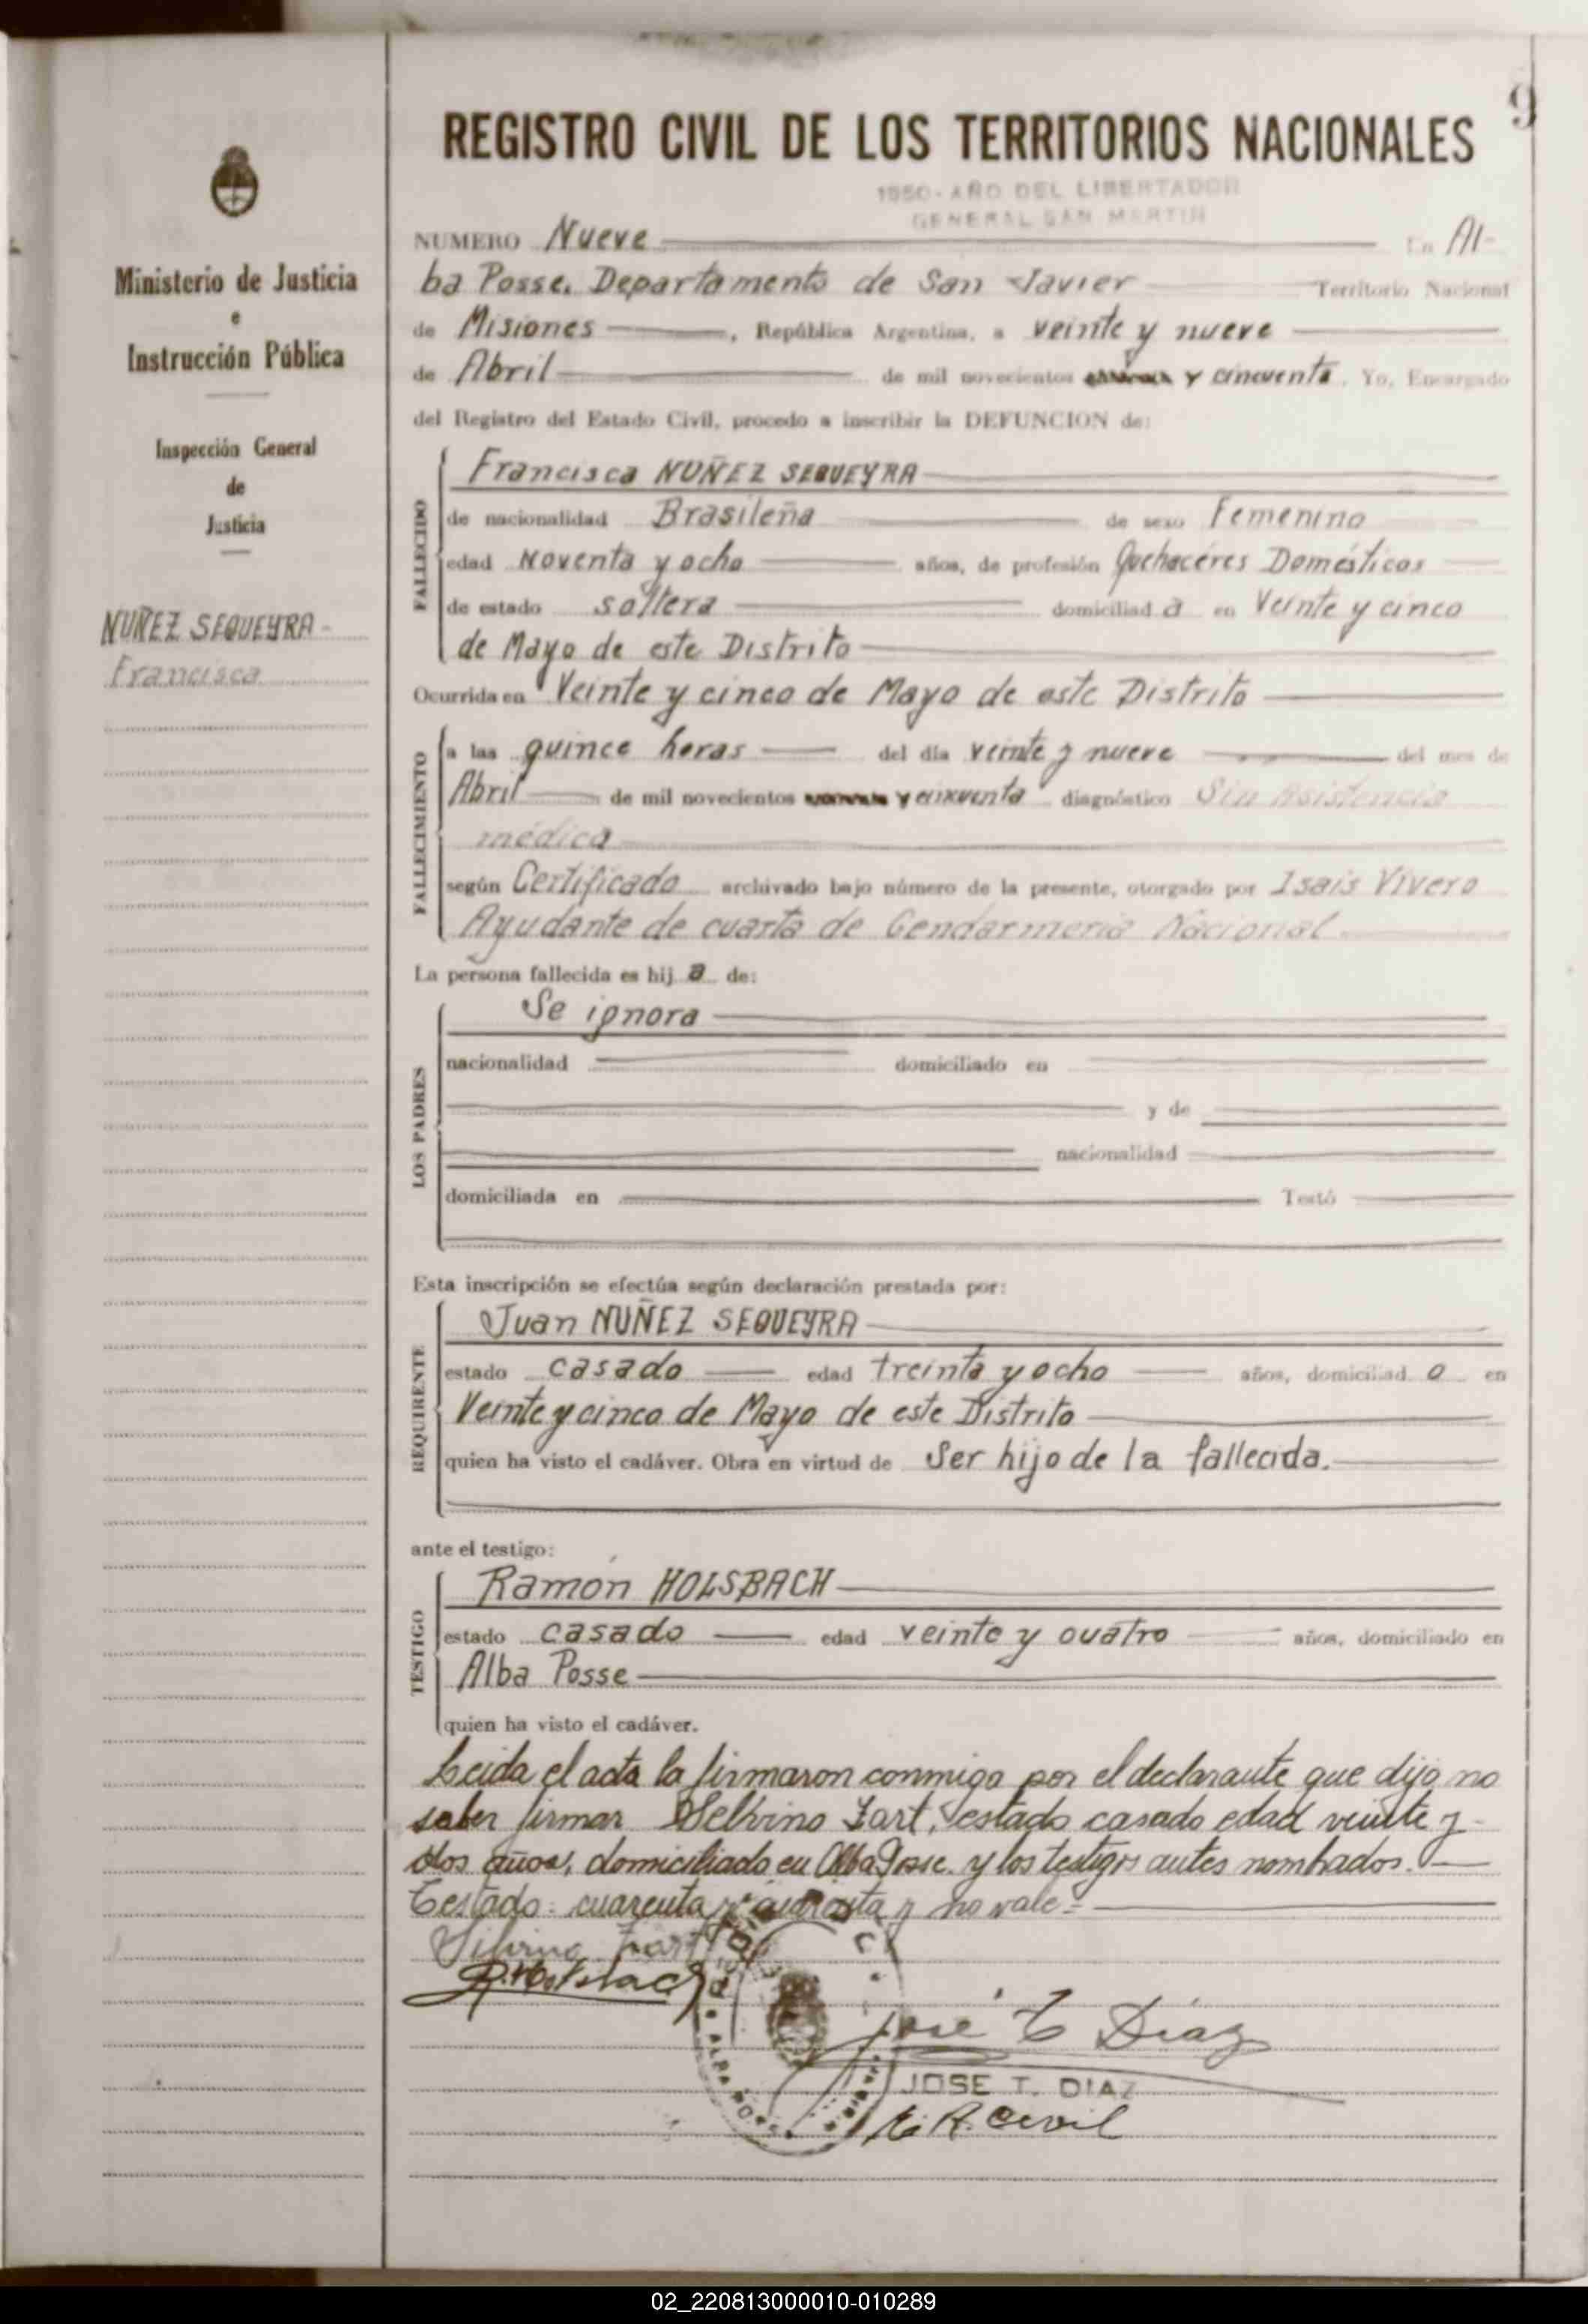 9
REGISTRO CIVIL DE LOS TERRITORIOS NACIONALES
1950-AÑO DEL LIBERTADOR
GENERAL SAN MARTIN
Ministerio de Justicia
e
Instrucción Pública
Inspección General
de
Justicia
NUÑEZ SEQUEYRA-
Francisca
NUMERO Nueve En Al-
ba Posse. Departamento de San Javier Territorio Nacional
de Misiones, República Argentina, a veinte y nueve
de Abril de mil novecientos y cincuenta. Yo, Encargado
del Registro del Estado Civil, procedo a inscribir la DEFUNCION de:
FALLECIDO
Francisca NUÑEZ SEQUEYRA
de nacionalidad Brasileña de sexo Femenino
edad Noventa y ocho años, de profesión Quehacéres Domésticos
de estado soltera domiciliad a en Veinte y cinco
de Mayo de este Distrito
Ocurrida en Veinte y cinco de Mayo de este Distrito
FALLECIMIENTO
a las quince horas del día veinte y nueve del mes de
Abril de mil novecientos y cincuenta diagnóstico Sin Asistencia
médica
según Certificado archivado bajo número de la presente, otorgado por Isais Vivero
Ayudante de cuarta de Gendarmeria Nacional
La persona fallecida es hij a de:
LOS PADRES
Se ignora
nacionalidad domiciliado en
y de
nacionalidad
domiciliada en Testó
Esta inscripción se efectúa según declaración prestada por:
REQUIRENTE
Juan NUÑEZ SEQUEYRA
estado casado edad treinta y ocho años, domiciliad o en
Veinte y cinco de Mayo de este Distrito
quien ha visto el cadáver. Obra en virtud de Ser hijo de la fallecida.
ante el testigo:
TESTIGO
Ramón HOLSBACH
estado casado edad veinte y cuatro años, domiciliado en
Alba Posse
quien ha visto el cadáver.
Leida el acta la firmaron conmigo por el declarante que dijo no
saber firmar Selvino Fart, estado casado edad veinte y
dos años, domiciliado en Alba Posse. y los testigos antes nombados.
Testado: cuarenta y cuarenta y no vale=
José T Díaz
JOSE T. DIAZ
E. R. Civil
ALBA POSSE
02_220813000010-010289